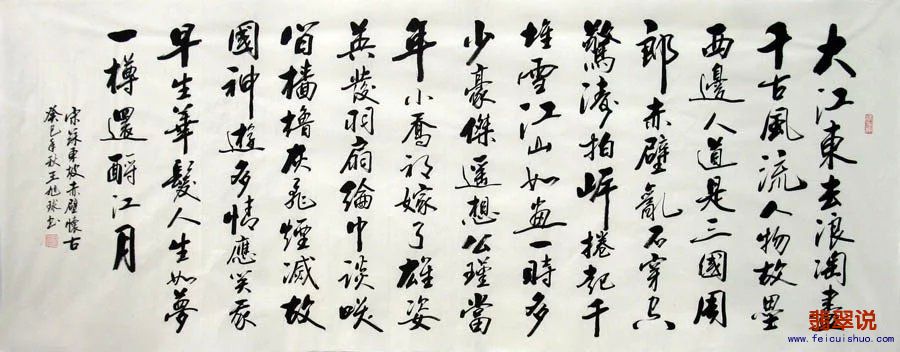 大江東去浪淘盡
千古風流人物故壘
西邊人道是三國周
郎赤壁亂石穿空
驚濤拍岸捲起千
堆雪江山如畫一時多
少豪傑遙想公瑾當
年小喬初嫁了雄姿
英發羽扇綸巾談咲
間檣櫓灰飛煙滅故
國神遊多情應笑我
早生華髮人生如夢
一樽還酹江月
宋蘇東坡赤壁懷古
癸巳年秋王旭書
翡翠说
www.feicuishuo.com